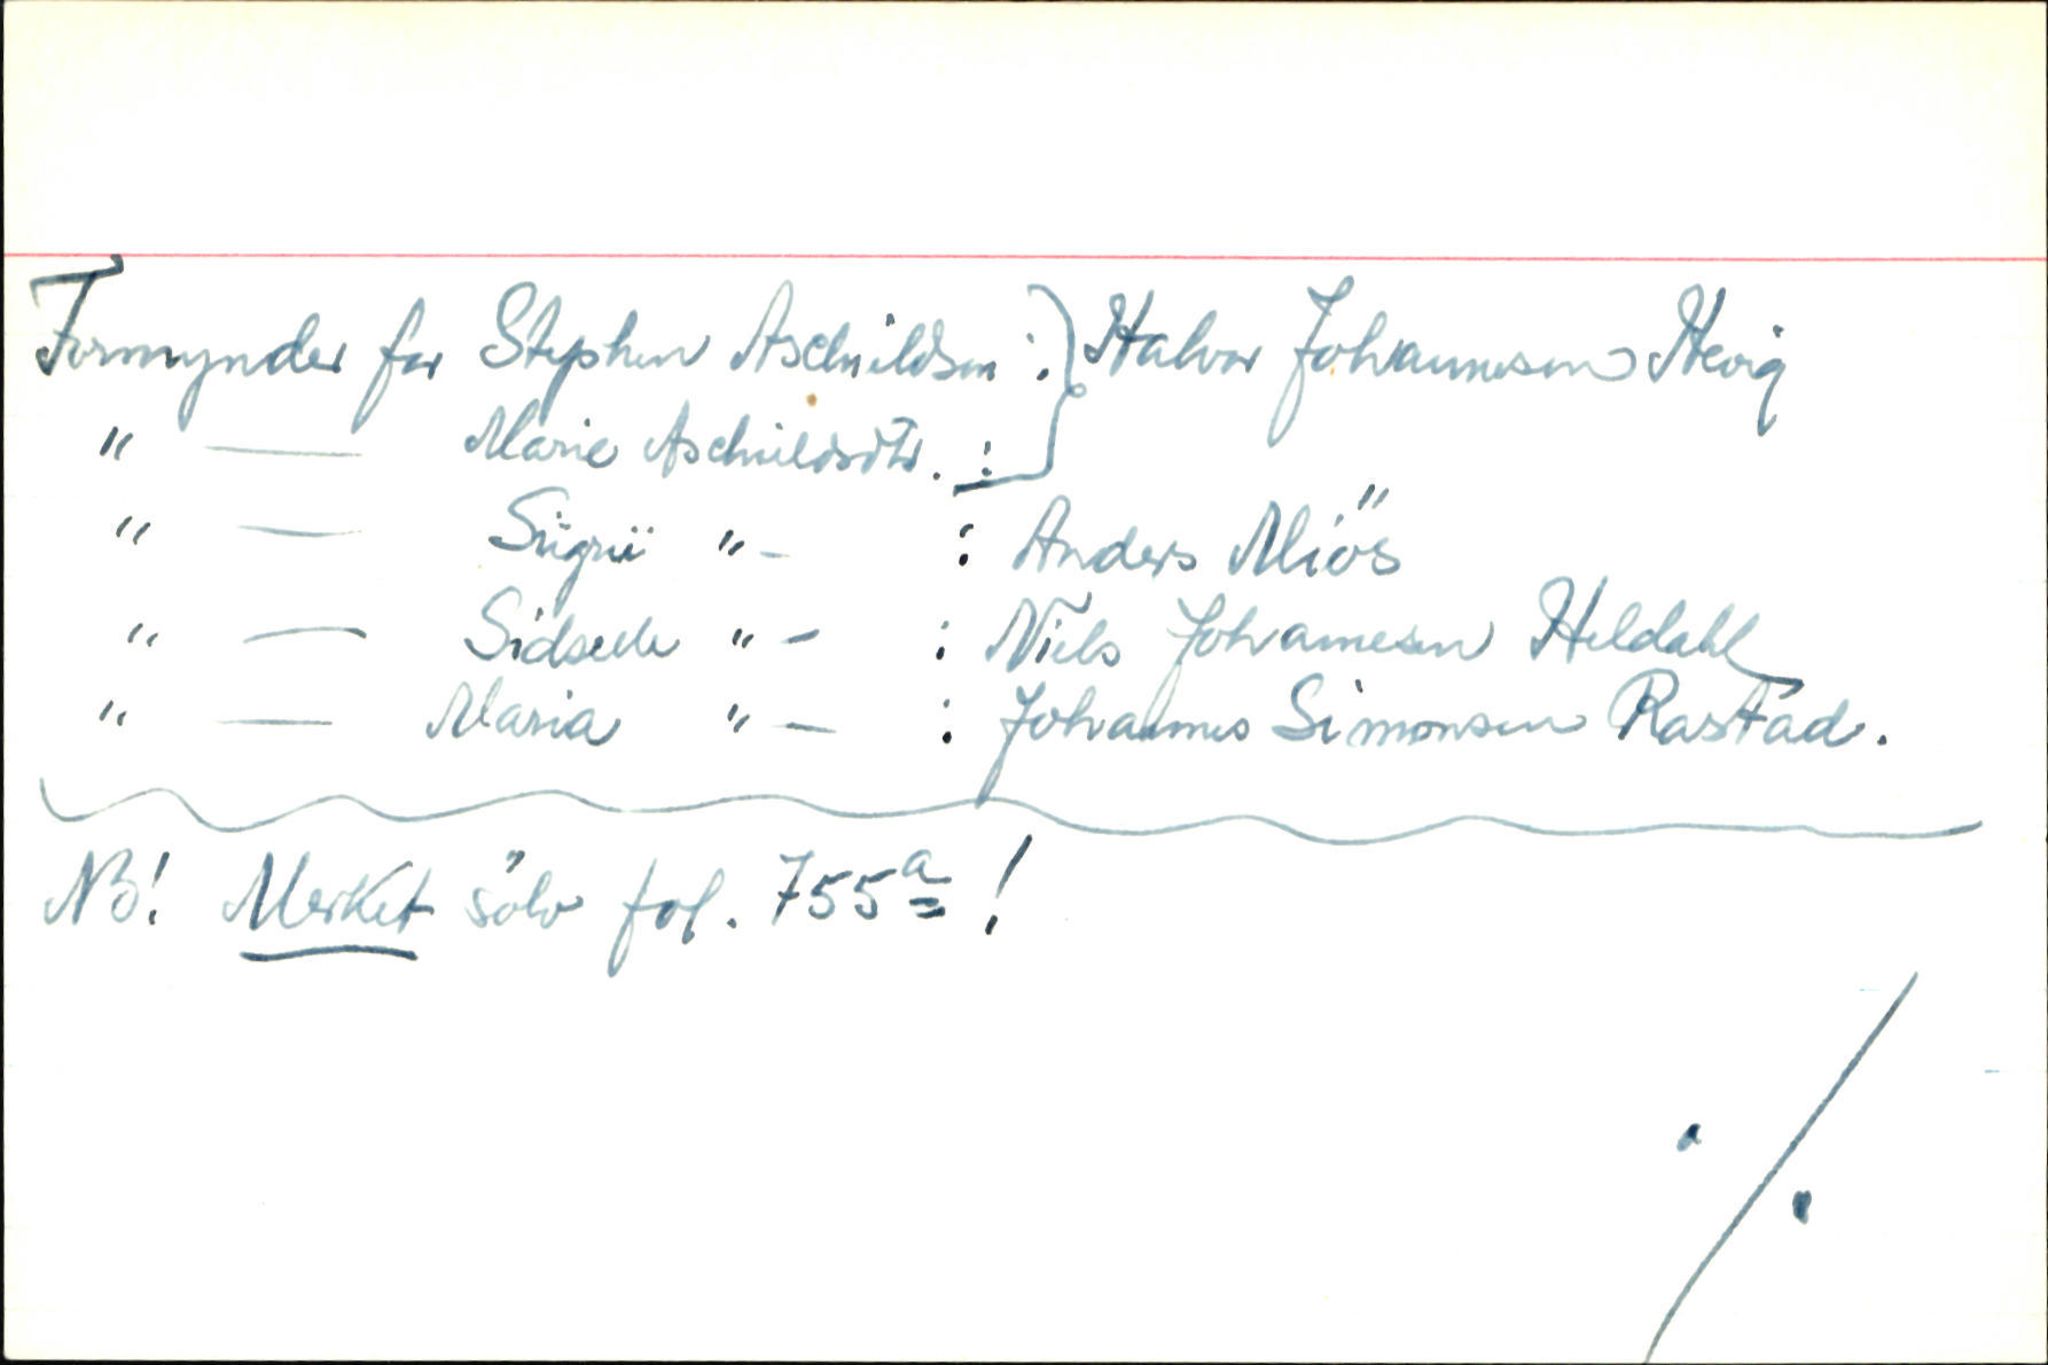 Formynder for Stephen Aschildsen : } Halvor Johannesen Hevig
" — Marie Aschildsdtr. :
" — Siigrii " - : Anders Miös
" — Sidsele " - : Niels Johannesen Heldahl
" — Maria " - : Johannes Simonsen Rastad.
NB! Merket sölv fol. 755a !